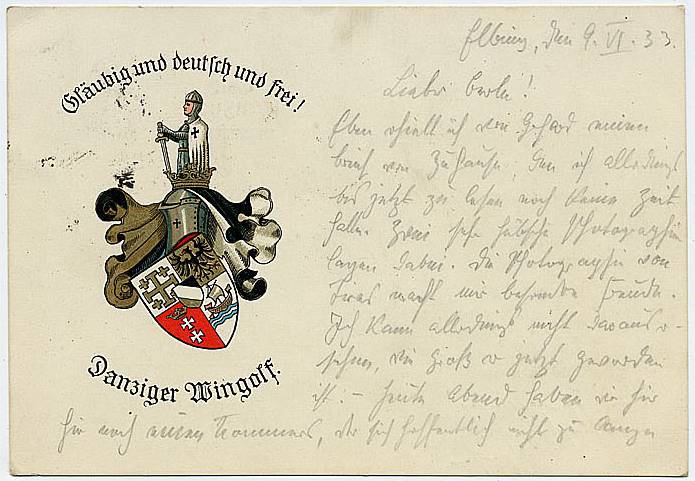 Gläubig und deutsch und frei!
Danziger Wingolf.
Elbing, den 9. VI. 33.
Lieber
Eben erhielt ich von Gerhard einen
Brief von Zuhause, den ich allerdings
bis jetzt zu lesen noch keine Zeit
hatte. Zwei sehr hübsche Photographien
lagen dabei. Die Photographie von
macht mir besondere Freude.
Ich kann allerdings nicht daraus er-
sehen, wie groß er jetzt geworden
ist. – Heute Abend haben wir hier
noch einen Kommers, der sich hoffentlich nicht zu lange